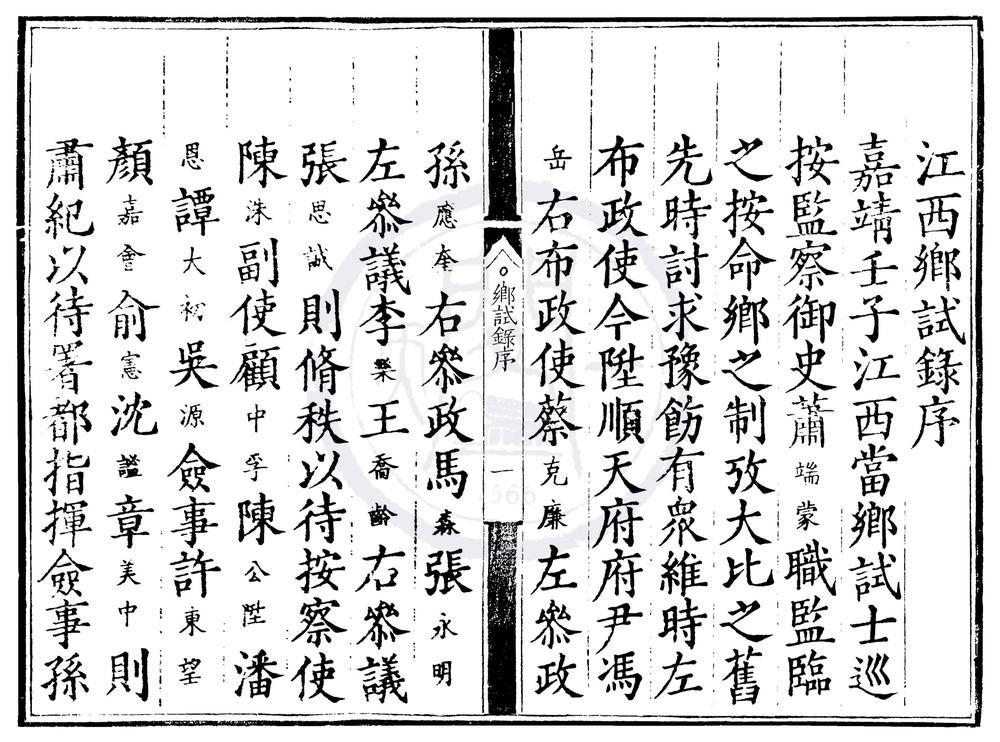 江西鄉試錄序
嘉靖壬子江西當鄉試士巡
按監察御史蕭端蒙職監臨
之按命鄉之制攷大比之舊
先時討求豫飭有眾維時左
布政使今陞順天府府尹馮
岳右布政使蔡克廉左叅政
鄉試錄序
一
孫應奎右叅政馬森張永明
左叅議李樂王喬齡右叅議
張思誠則脩秩以待按察使
陳洙副使顧中孚陳公陞潘
恩譚大初吳源僉事許東望
顏嘉會俞憲沈謐章美中則
肅紀以待署都指揮僉事孫